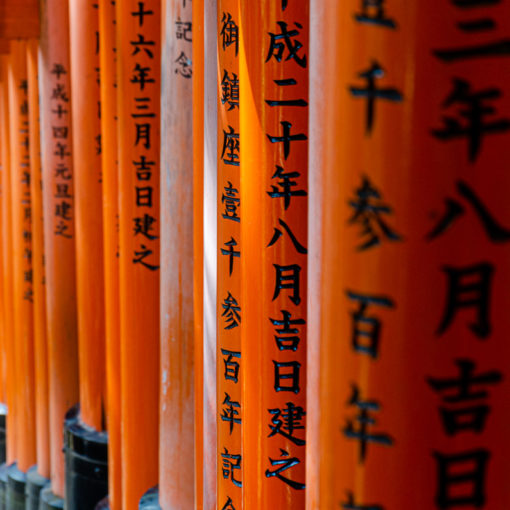 三年八月吉日
壹千参百年記
成二十年八月吉日建之
御鎮座壹千参百年記念
記念
十六年三月吉日建之
平成十四年元旦建之